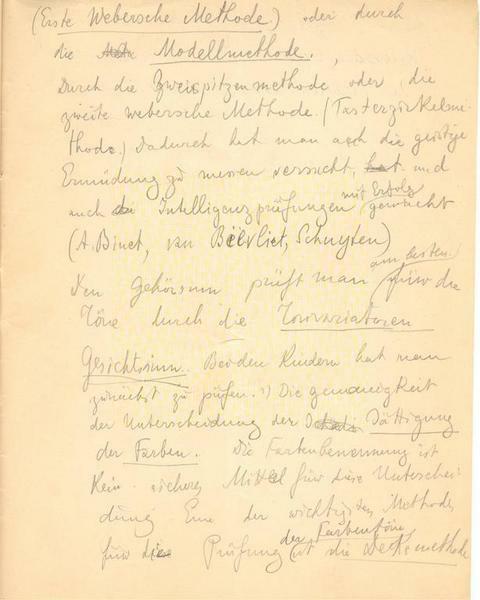 (Erste Webersche Methode) oder durch
die Modellmethode.,
Durch die Zweispitzenmethode oder die
zweite webersche Methode. (Tasterzirkelme-
thode.) Dadurch hat man auch die geistige
Ermüdung zu messen versucht, hat und
auch die Intelligenzprüfungen mit Erfolg gemacht
(A. Binet, van Biervliet, Schuyten)
Den Gehörsinn prüft man am besten für die
Töne durch die Tonvariatoren
Gesichtssinn. Bei den Kindern hat man
zunächst zu püfen. 1) Die genauigkeit
der Unterscheidung der Sättigung
der Farben. Die Farbenbenennung ist
kein sicheres Mittel für diese Unterschei-
dung Eine der wichtigsten Methode,
für die Prüfung der Farbentöne ist die Decksmethode